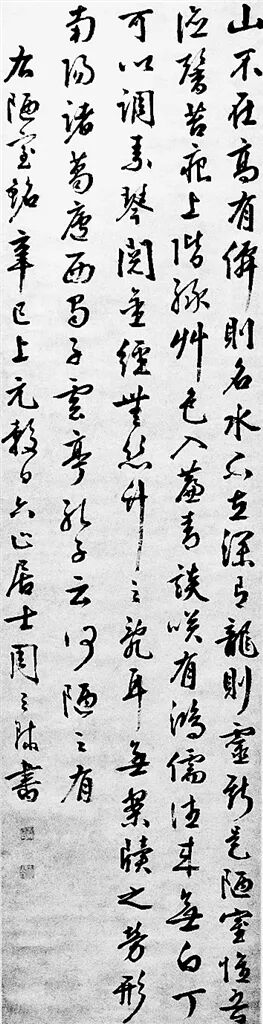 山不在高有僊則名水不在深有龍則靈斯是陋室惟吾
德馨苔痕上階綠艸色入簾青談咲有鴻儒往來無白丁
可以調素琴閱金經無絲竹之亂耳無案牘之勞形
南陽諸葛廬西蜀子雲亭孔子云何陋之有
右陋室銘辛巳上元穀日六止居士周之書